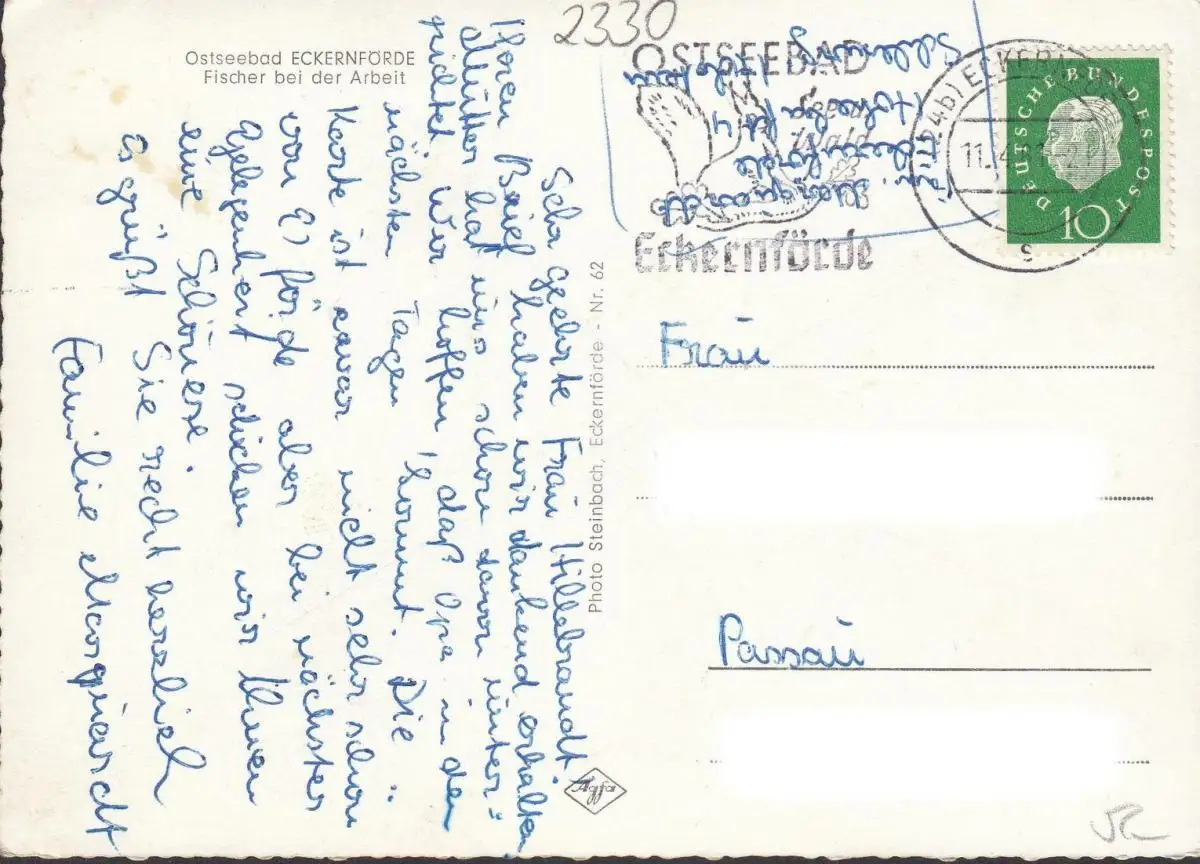 2330
Ostseebad ECKERNFÖRDE
Fischer bei der Arbeit
Sehr geehrte Frau Hillebrandt!
Ihren Brief haben wir dankend erhalten
Mutter hat uns schon davon unter-
richtet. Wir hoffen, daß Opa in den
nächsten Tagen kommt. Die
Karte ist zwar nicht sehr schön
von E, förde aber bei nächster
Gelegenheit schicken wir Ihnen
eine Schönere.
Es grüßt Sie recht herzlich
Familie Marquardt
Photo Steinbach, Eckernförde - Nr. 62
Agfa
OSTSEEBAD
Eckernförde
(24b) ECKERNFÖRDE
11.4.
s
DEUTSCHE BUNDESPOST
10
Marquardt
Eckernförde
Schleswig
Holstein
Frau
Passau